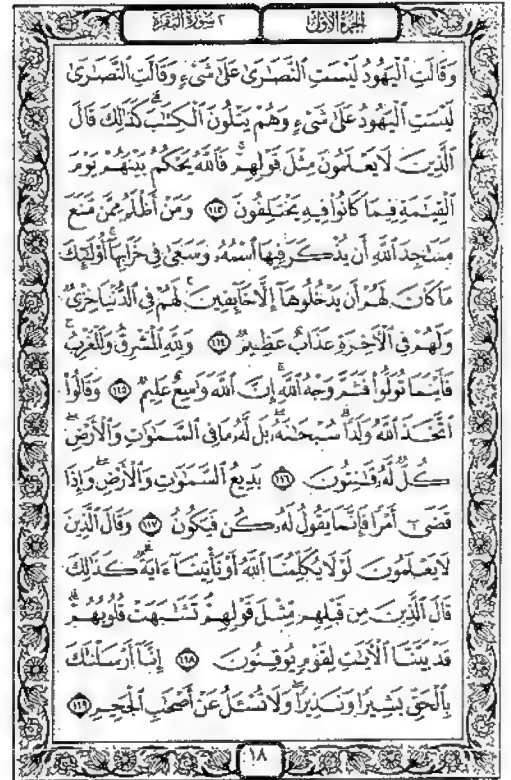 الجزء الأول ٢ سورة البقرة
وَقَالَتِ ٱلْيَهُودُ لَيْسَتِ ٱلنَّصَـٰرَىٰ عَلَىٰ شَىْءٍ وَقَالَتِ ٱلنَّصَـٰرَىٰ
لَيْسَتِ ٱلْيَهُودُ عَلَىٰ شَىْءٍ وَهُمْ يَتْلُونَ ٱلْكِتَـٰبَ ۗ كَذَٰلِكَ قَالَ
ٱلَّذِينَ لَا يَعْلَمُونَ مِثْلَ قَوْلِهِمْ ۚ فَٱللَّهُ يَحْكُمُ بَيْنَهُمْ يَوْمَ
ٱلْقِيَـٰمَةِ فِيمَا كَانُوا۟ فِيهِ يَخْتَلِفُونَ ١١٣ وَمَنْ أَظْلَمُ مِمَّن مَّنَعَ
مَسَـٰجِدَ ٱللَّهِ أَن يُذْكَرَ فِيهَا ٱسْمُهُۥ وَسَعَىٰ فِى خَرَابِهَآ ۚ أُو۟لَـٰٓئِكَ
مَا كَانَ لَهُمْ أَن يَدْخُلُوهَآ إِلَّا خَآئِفِينَ ۚ لَهُمْ فِى ٱلدُّنْيَا خِزْىٌ
وَلَهُمْ فِى ٱلْـَٔاخِرَةِ عَذَابٌ عَظِيمٌ ١١٤ وَلِلَّهِ ٱلْمَشْرِقُ وَٱلْمَغْرِبُ ۚ
فَأَيْنَمَا تُوَلُّوا۟ فَثَمَّ وَجْهُ ٱللَّهِ ۚ إِنَّ ٱللَّهَ وَٰسِعٌ عَلِيمٌ ١١٥ وَقَالُوا۟
ٱتَّخَذَ ٱللَّهُ وَلَدًا ۗ سُبْحَـٰنَهُۥ ۖ بَل لَّهُۥ مَا فِى ٱلسَّمَـٰوَٰتِ وَٱلْأَرْضِ ۖ
كُلٌّ لَّهُۥ قَـٰنِتُونَ ١١٦ بَدِيعُ ٱلسَّمَـٰوَٰتِ وَٱلْأَرْضِ ۖ وَإِذَا
قَضَىٰٓ أَمْرًا فَإِنَّمَا يَقُولُ لَهُۥ كُن فَيَكُونُ ١١٧ وَقَالَ ٱلَّذِينَ
لَا يَعْلَمُونَ لَوْلَا يُكَلِّمُنَا ٱللَّهُ أَوْ تَأْتِينَآ ءَايَةٌ ۗ كَذَٰلِكَ
قَالَ ٱلَّذِينَ مِن قَبْلِهِم مِّثْلَ قَوْلِهِمْ ۘ تَشَـٰبَهَتْ قُلُوبُهُمْ ۗ
قَدْ بَيَّنَّا ٱلْـَٔايَـٰتِ لِقَوْمٍ يُوقِنُونَ ١١٨ إِنَّآ أَرْسَلْنَـٰكَ
بِٱلْحَقِّ بَشِيرًا وَنَذِيرًا ۖ وَلَا تُسْـَٔلُ عَنْ أَصْحَـٰبِ ٱلْجَحِيمِ ١١٩
١٨